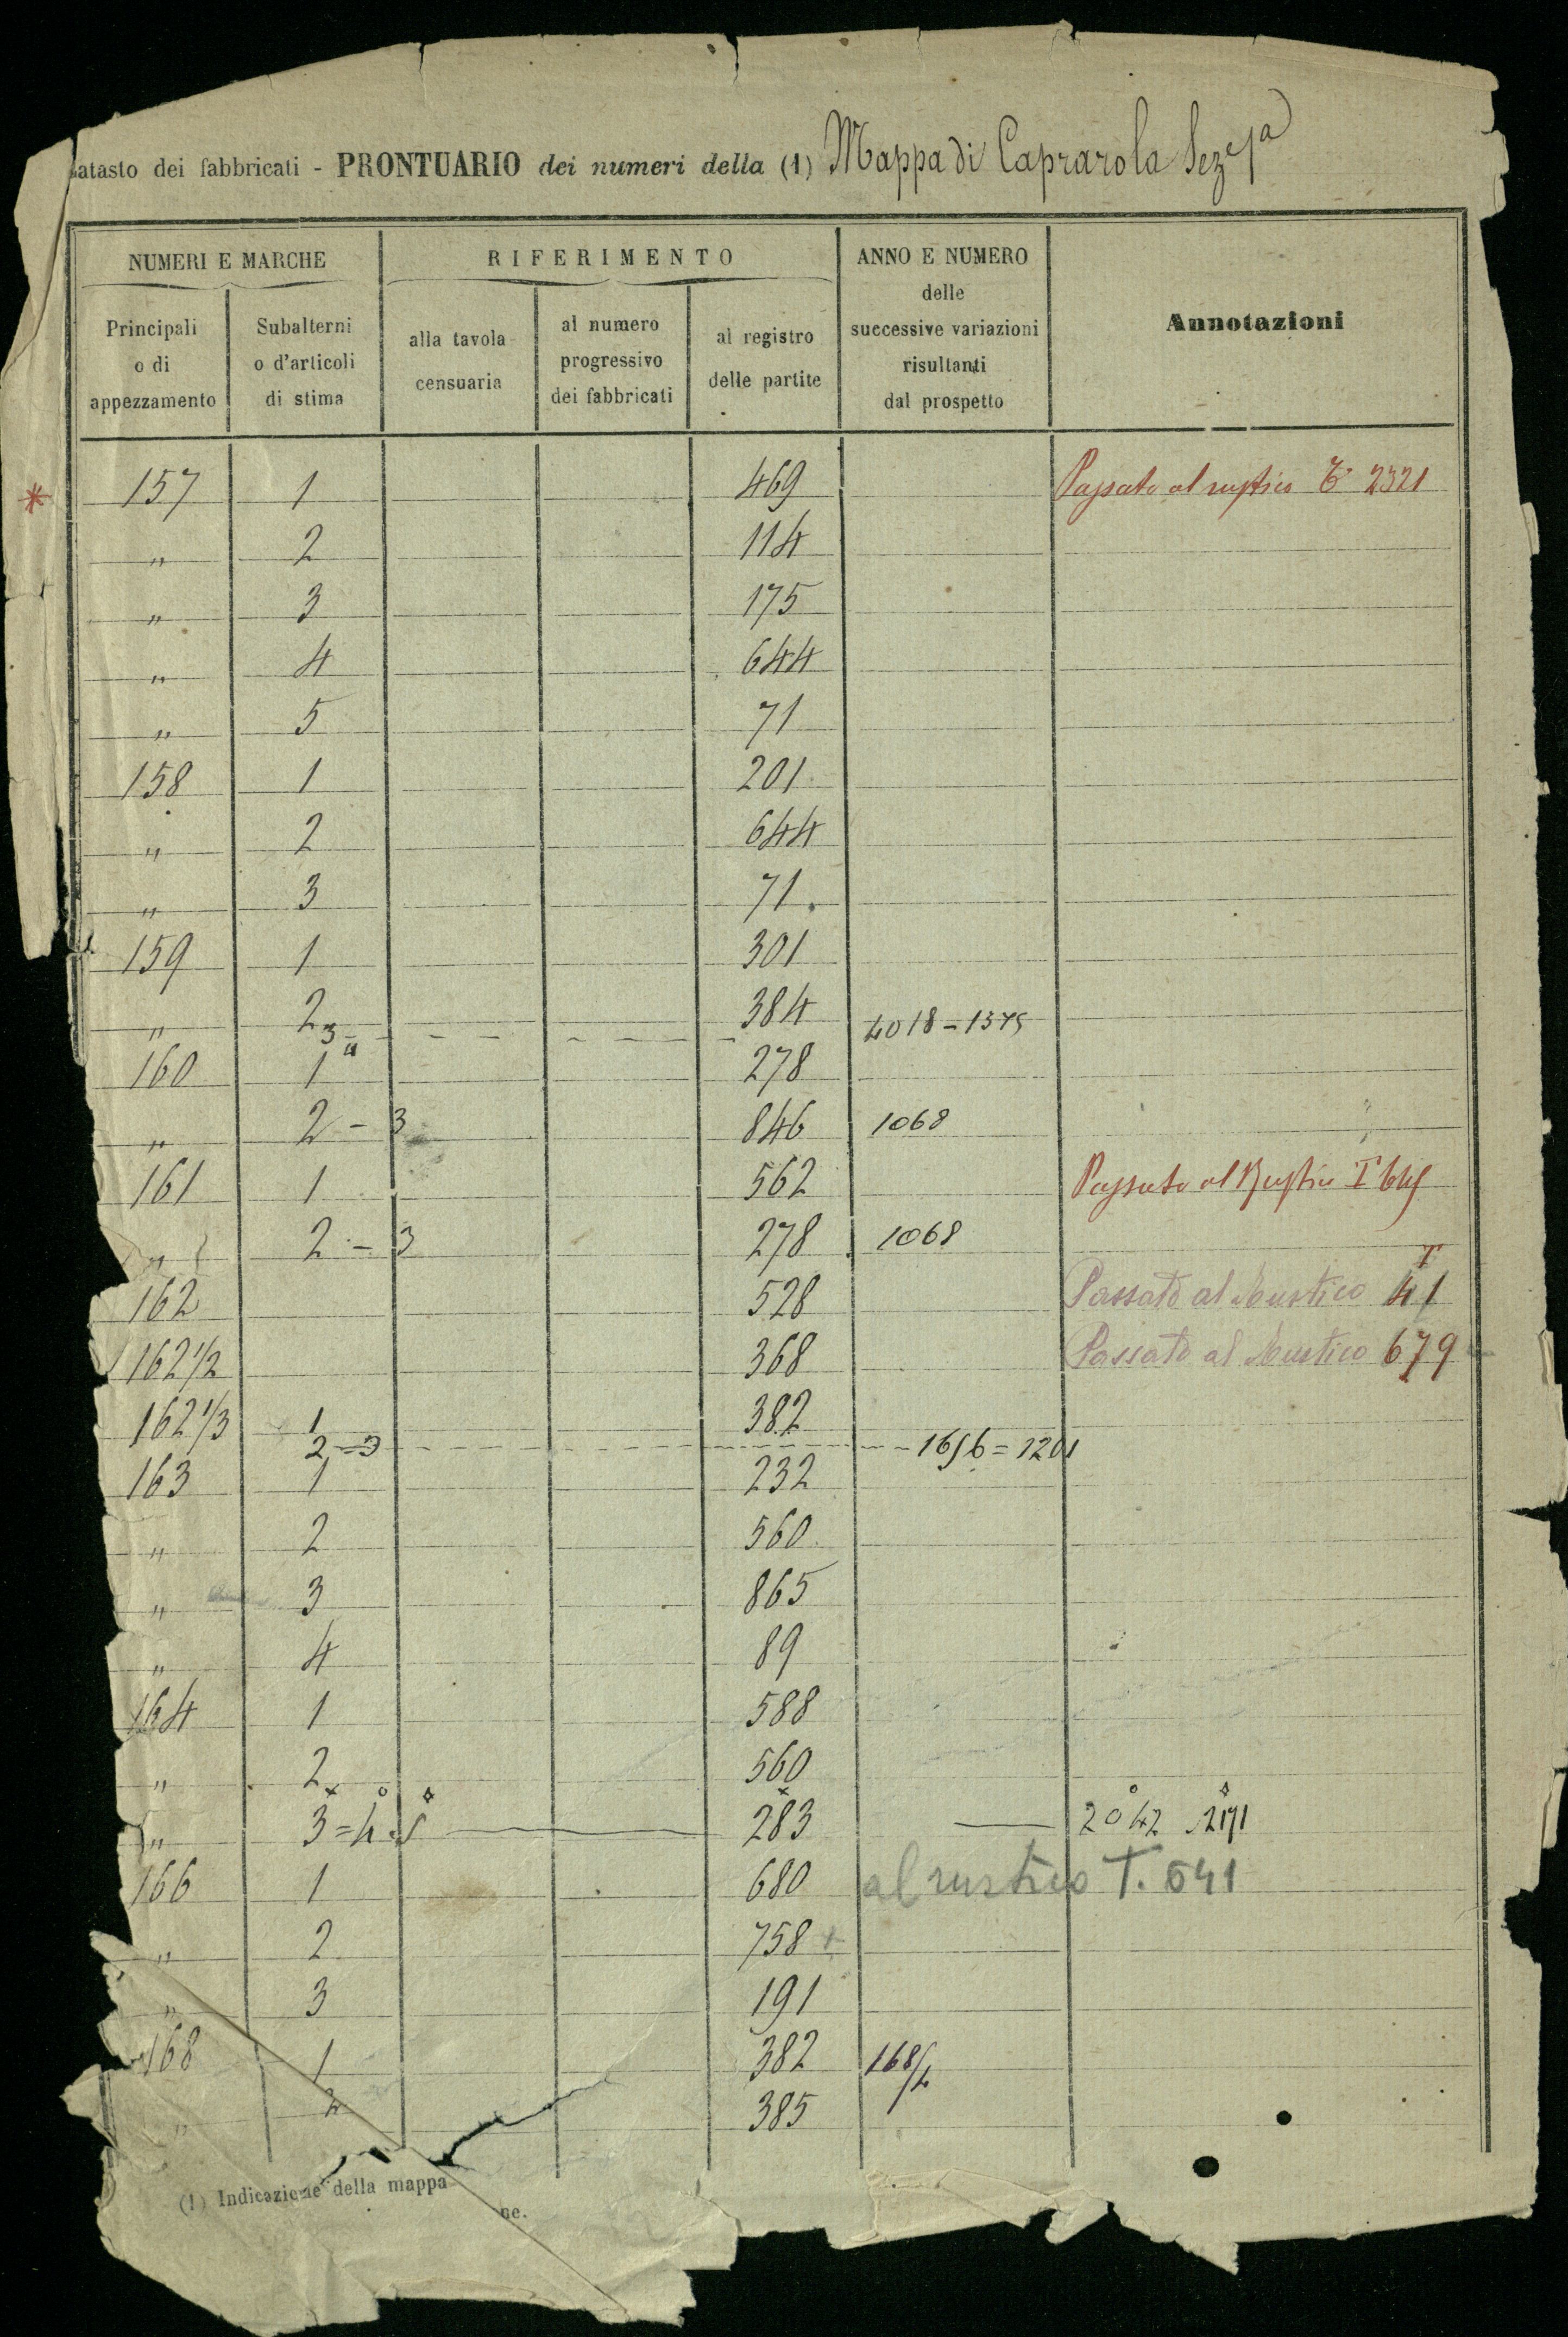 atasto dei fabbricati - PRONTUARIO dei numeri della (1) Mappa di Caprarola Sez. 1a
NUMERI E MARCHE RIFERIMENTO ANNO E NUMERO delle successive variazioni risultanti dal prospetto Annotazioni
Principali o di appezzamento Subalterni o d'articoli di stima alla tavola censuaria al numero progressivo dei fabbricati al registro delle partite
* 157 1 469 Passato al rustico T 2321
" 2 114
" 3 175
" 4 644
" 5 71
158 1 201
" 2 644
" 3 71
159 1 301
" 2 384
3 4018 - 1375
160 1 278
" 2 - 3 846 1068
161 1 562 Passato al Rustico T
" 2 - 3 278 1068
162 528 Passato al Rustico T 41
162 1/2 368 Passato al Rustico 679
162 1/3 1 382
2 = 3 1656 = 1201
163 1 232
" 2 560
" 3 865
" 4 89
164 1 588
" 2 560
" 3 = 4 . 5 283 2042 2171
166 1 680 al rustico T. 541
" 2 758 +
" 3 191
168 1 382 168/2
" 2 385
(1) Indicazione della mappa ne.